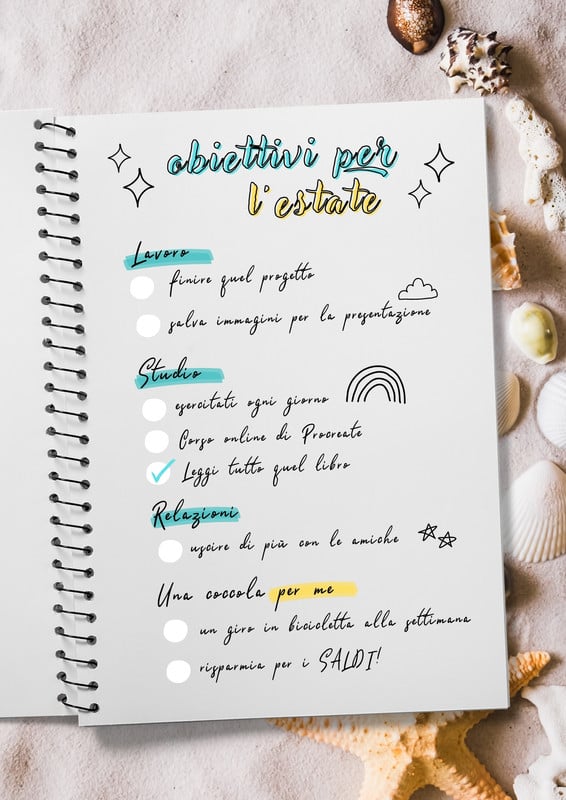 obiettivi per
l'estate
Lavoro
finire quel progetto
salva immagini per la presentazione
Studio
esercitati ogni giorno
Corso online di Procreate
Leggi tutto quel libro
Relazioni
uscire di più con le amiche
Una coccola per me
un giro in bicicletta alla settimana
risparmia per i SALDI!